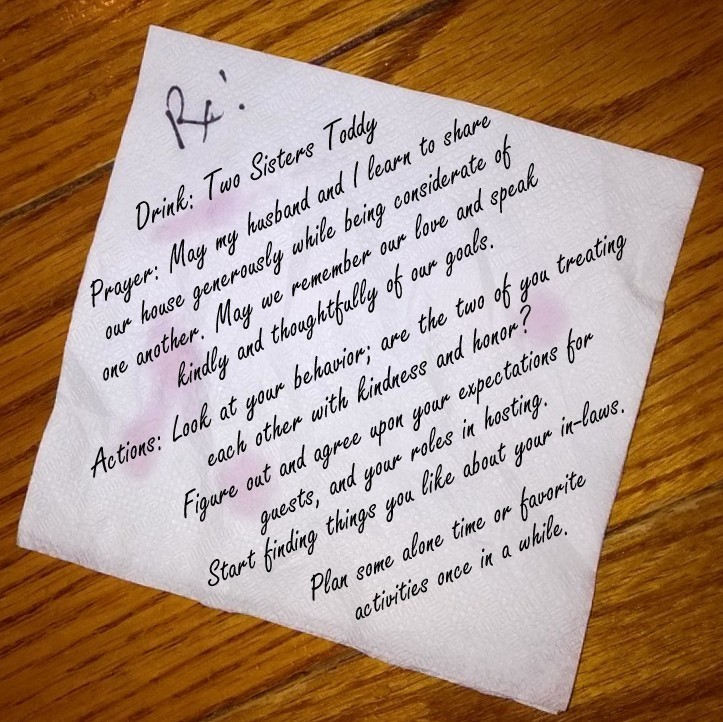 Rx!
Drink: Two Sisters Toddy
Prayer: May my husband and I learn to share
our house generously while being considerate of
one another. May we remember our love and speak
kindly and thoughtfully of our goals.
Actions: Look at your behavior; are the two of you treating
each other with kindness and honor?
Figure out and agree upon your expectations for
guests, and your roles in hosting.
Start finding things you like about your in-laws.
Plan some alone time or favorite
activities once in a while.